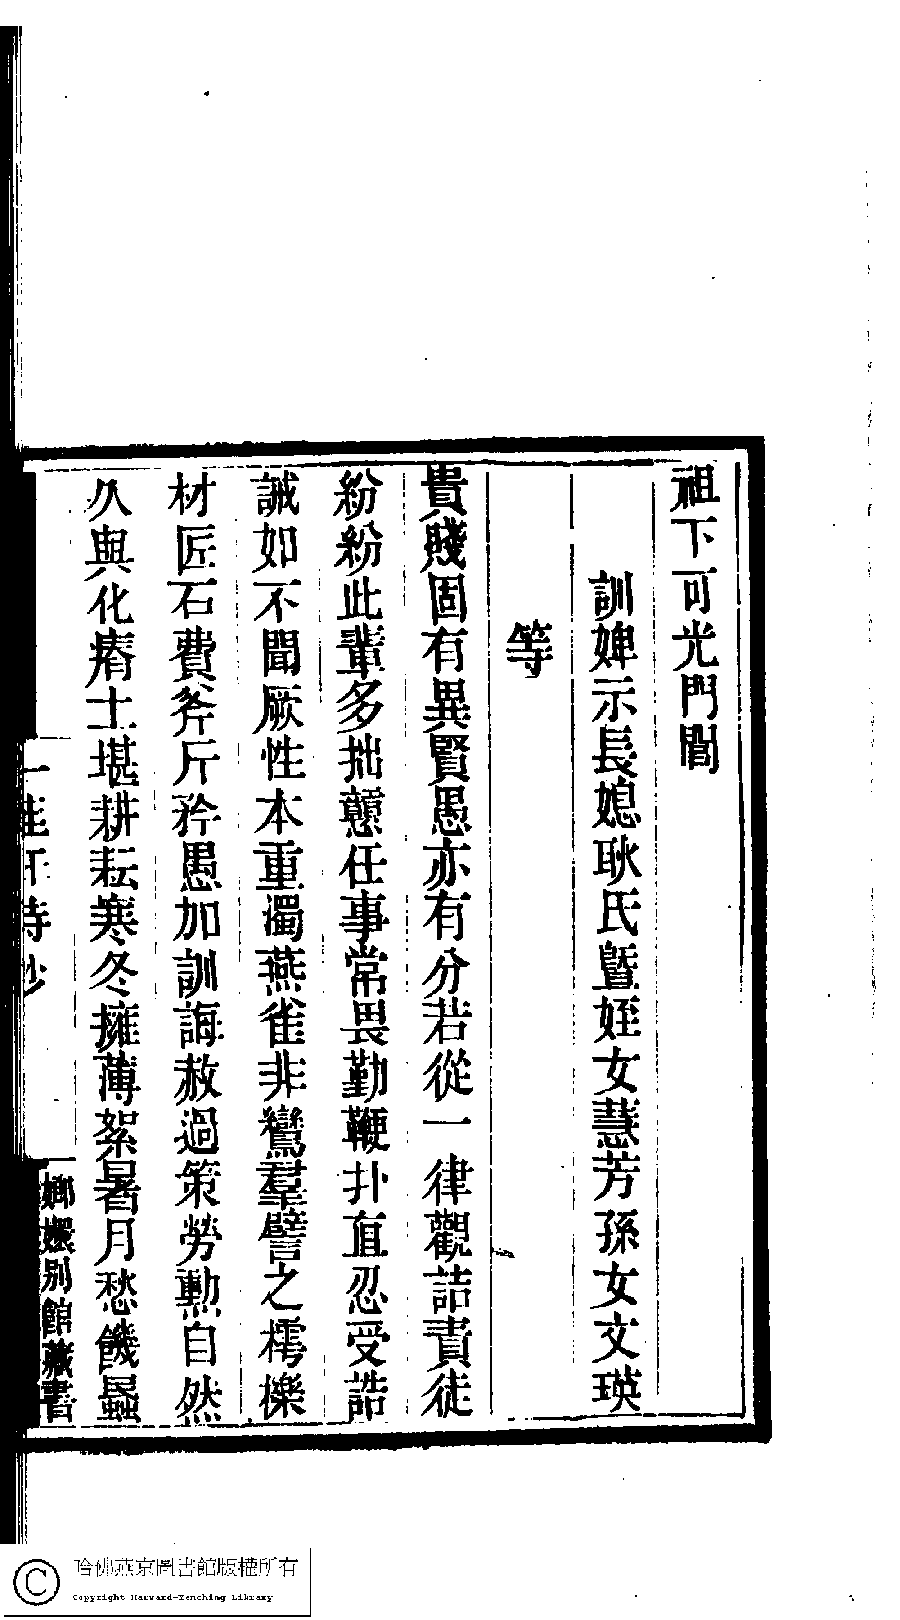 祖下可光門閭
訓婢示長媳耿氏暨姪女慧芳孫女文瑛
等
貴賤固有異賢愚亦有分若從一律觀詰責徒
紛紛此輩多拙戇任事常畏勤鞭扑直忍受誥
誡如不聞厥性本重濁燕雀非鸞羣譬之樗櫟
材匠石費斧斤矜愚加訓誨赦過策勞勲自然
久與化瘠土堪耕耘寒冬擁薄絮暑月愁饑蟁
嫏嬛別館藏書
哈佛燕京圖書館版權所有
Copyright Harvard-Yenching Library